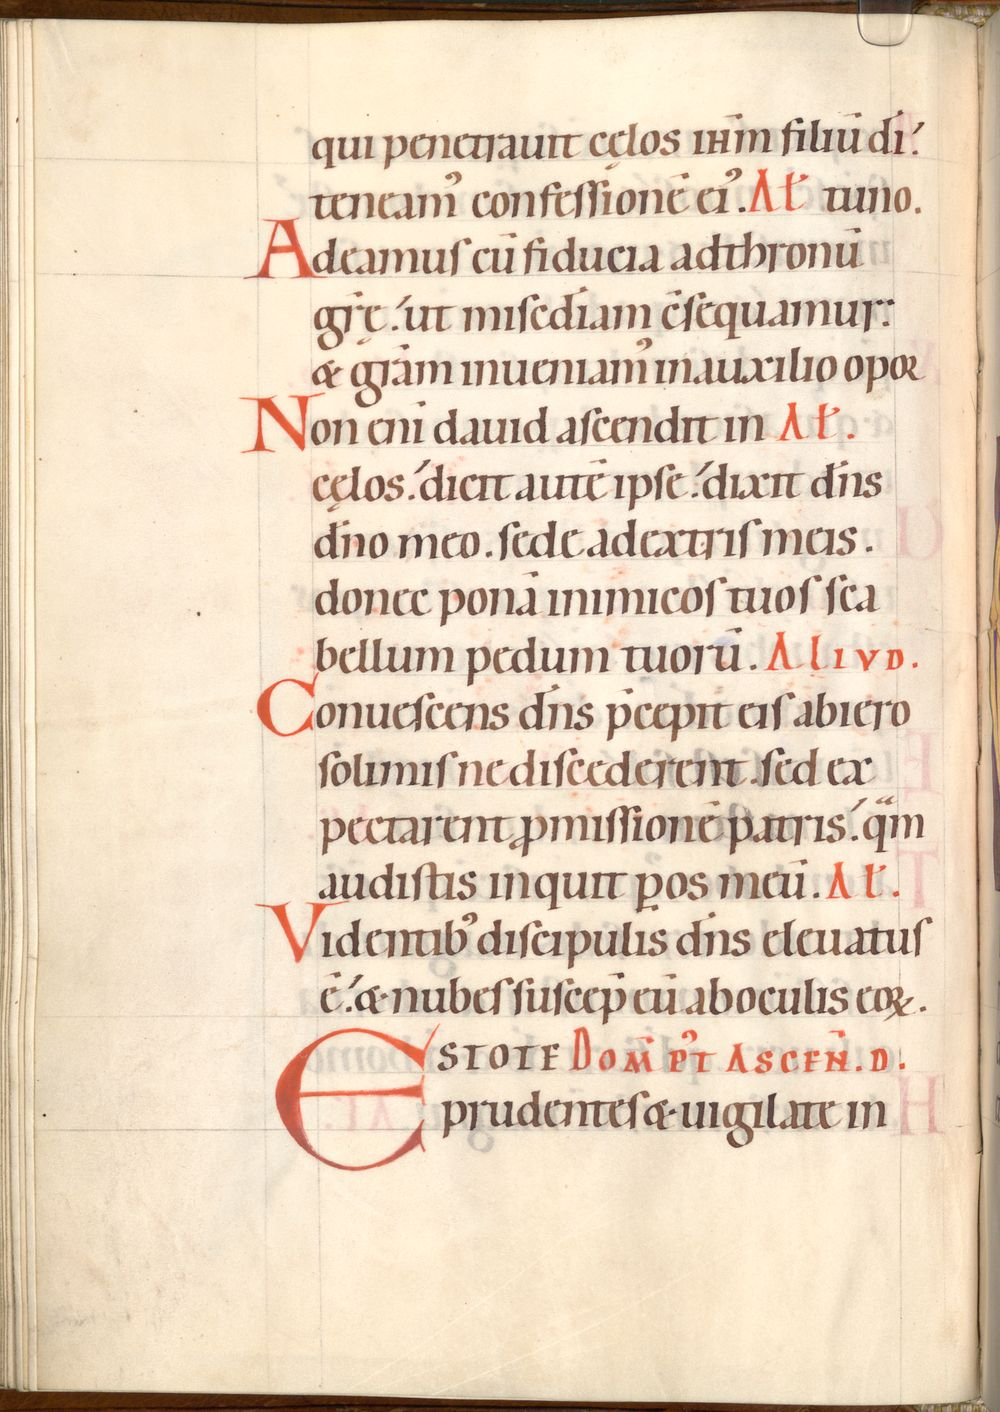 qui penetrauit cęlos ihm̄ filiū di ̄.
teneam᾿ confessionē ei᾿. Al̄ tuno.
Adeamus cū fiducia ad thronū
gr̄ę. ut misc̄diam c̄sequamur.
& grām inueniam᾿ in auxilio opor
Non eni ̄ dauid ascendit in Al̄.
cęlos. dicit autē ipse. dixit dn̄s
dn̄o meo. sede a dextris meis.
donec ponā inimicos tuos sca
bellum pedum tuorū. Aliud.
Conuescens dn̄s p̄cepit eis ab iero
solimis ne discederent. sed ex
pectarent ꝓmissionē patris. qm̄
audistis inquit ꝑ os meū. Al̄.
Videntib᾿ discipulis dn̄s eleuatus
ē. & nubes suscep̄ eū ab oculis eoꝝ.
ESTOTE Dom̄ p᾿t ascen̄. d.
prudentes & uigilate in